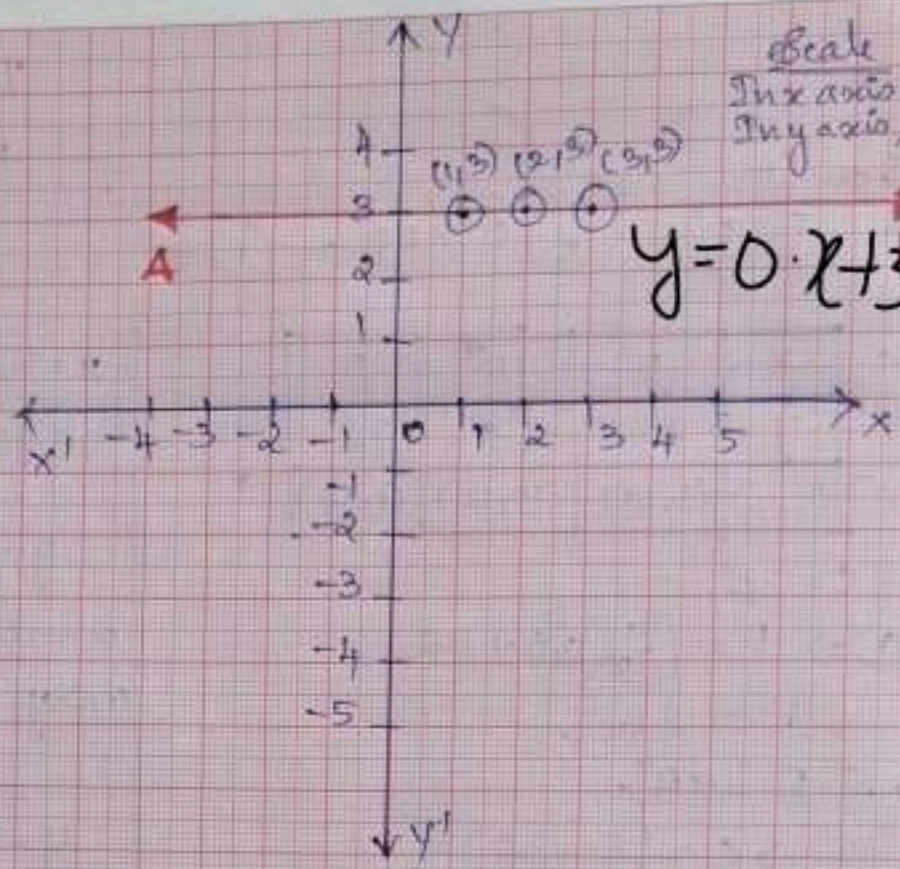 Y
Scale
In x axis
In y axis
4
(1,3) (2,3) (3,3)
3
A
y=0·x+3
2
1
X' -4 -3 -2 -1 0 1 2 3 4 5 x
-1
-2
-3
-4
-5
Y'